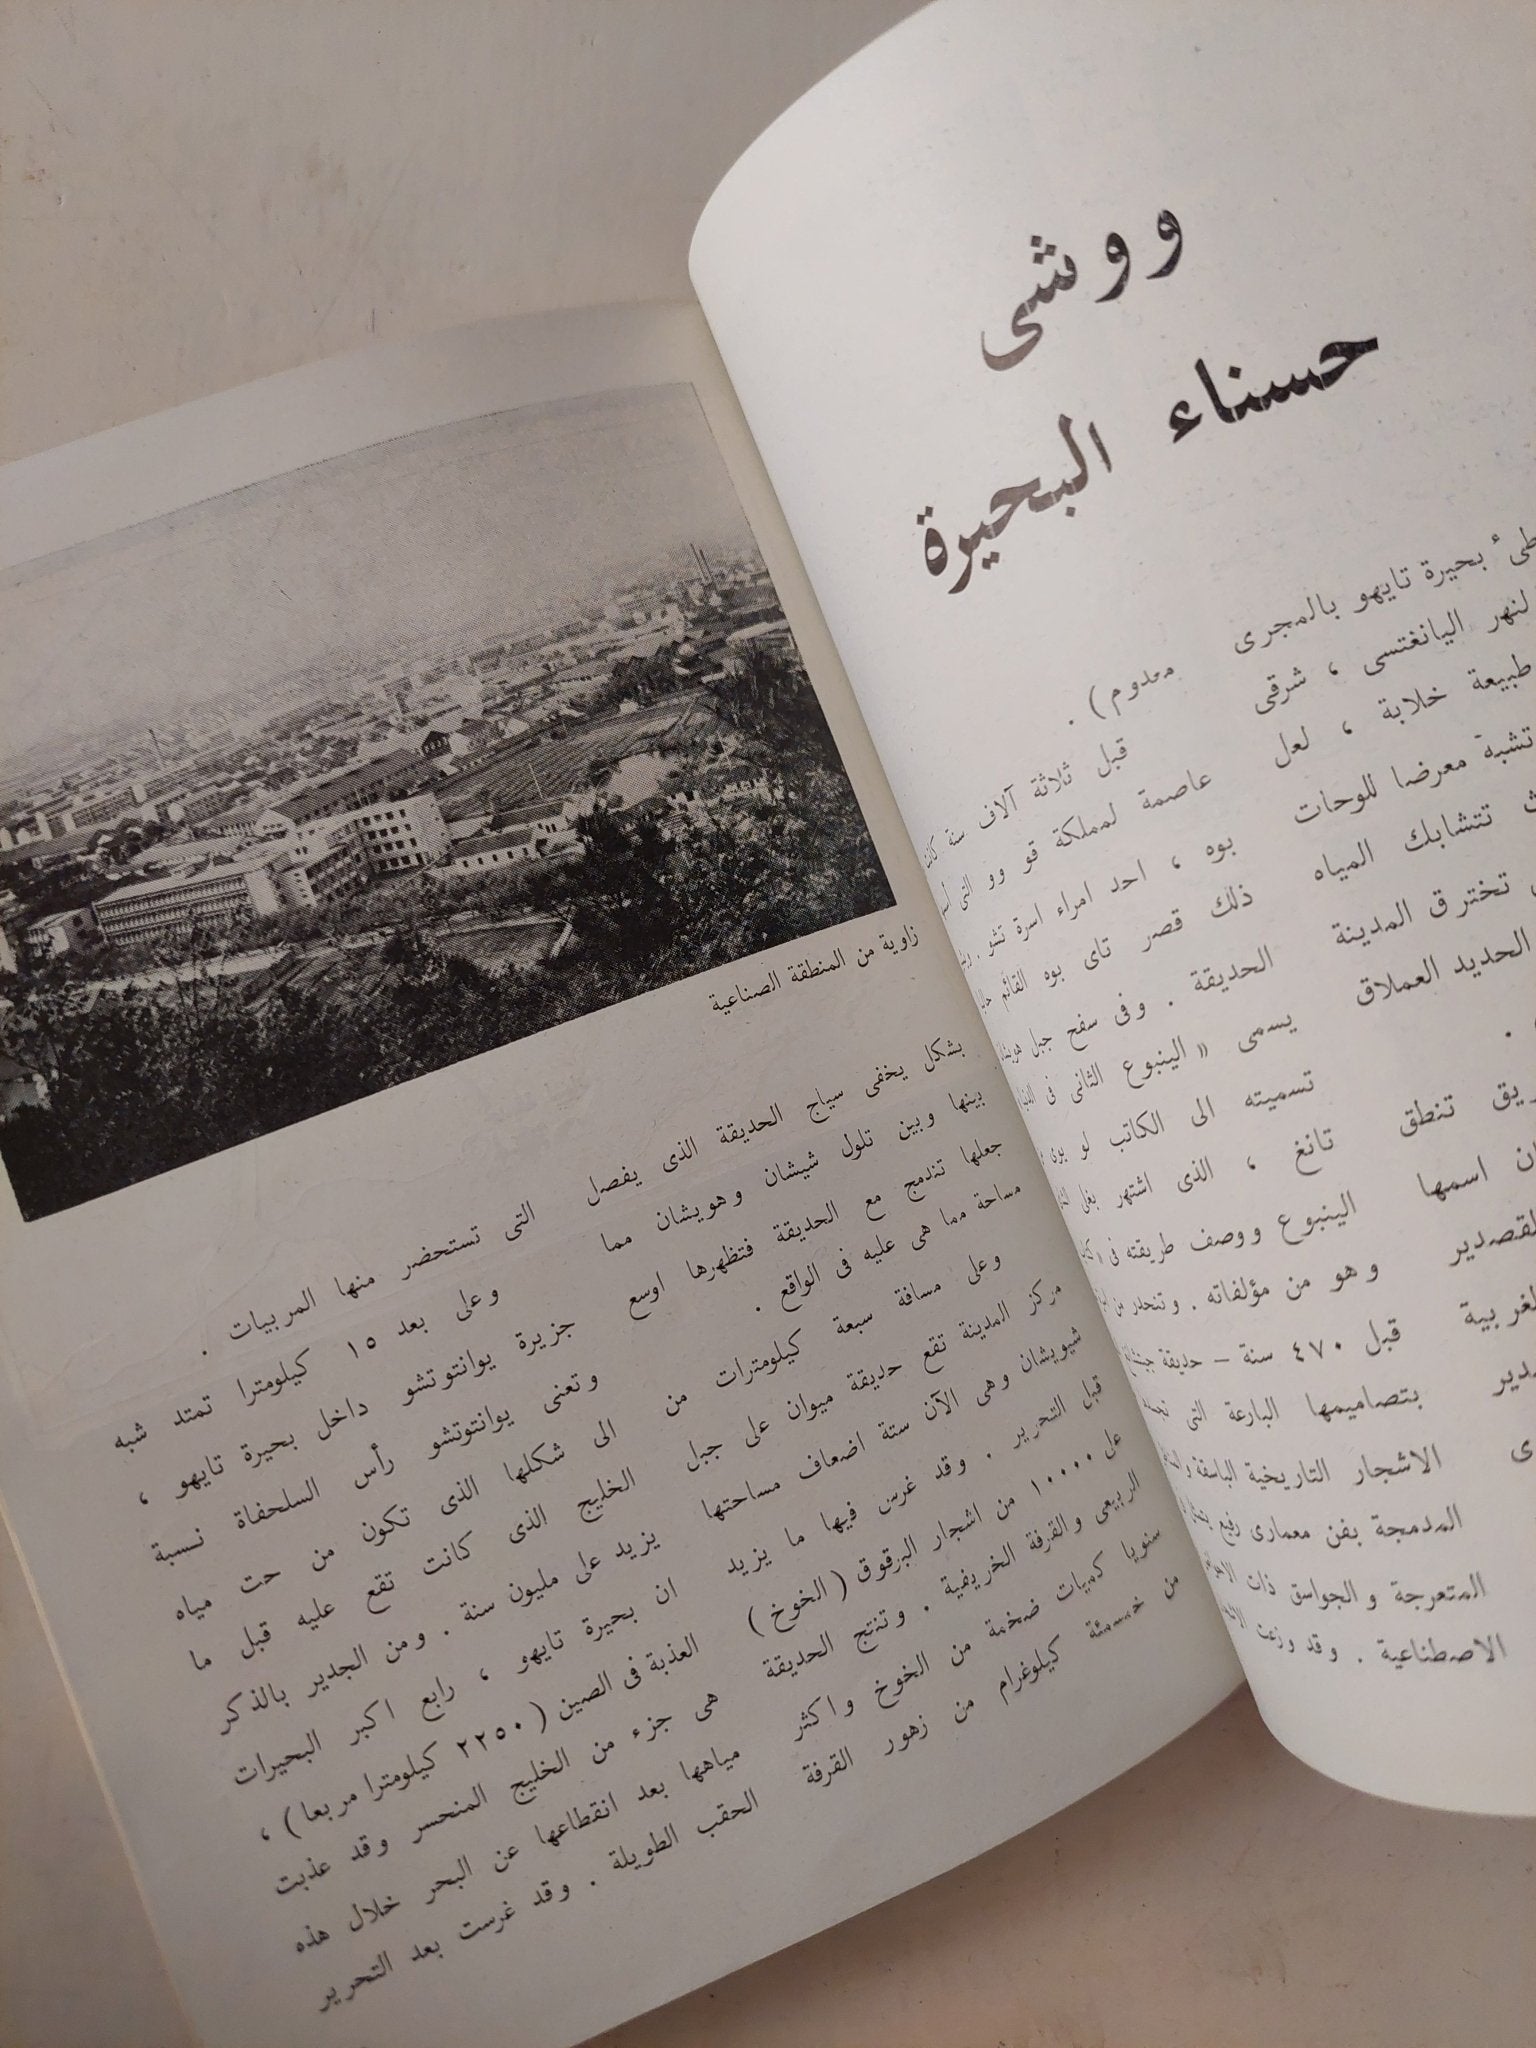 ووشى
حسناء البحيرة
بحيرة تايهو بالمجرى
لنهر اليانغتسى ، شرقى
طبيعة خلابة ، لعل
تشبة معرضا للوحات
تتشابك المياه
تخترق المدينة
الحديد العملاق
تنطق
اسمها
معدوم) .
قبل ثلاثة آلاف سنة كانت
عاصمة لمملكة قو وو التى
بوه ، احد امراء اسرة تشو .
ذلك قصر تاى بوه القائم
الحديقة . وفى سفح جبل
يسمى « الينبوع الثانى فى
تسميته الى الكاتب لو يوى
تانغ ، الذى اشتهر بغلى
الينبوع ووصف طريقته فى
وهو من مؤلفاته . وتنحدر من
قبل ٤٧٠ سنة – حديقة
بتصاميمها البارعة التى
الاشجار التاريخية الباسقة
المدمجة بفن معمارى رفيع
المتعرجة والجواسق ذات
الاصطناعية . وقد وزعت
زاوية من المنطقة الصناعية
بشكل يخفى سياج الحديقة الذى يفصل
بينها وبين تلول شيشان وهويشان مما
جعلها تندمج مع الحديقة فتظهرها اوسع
مساحة مما هى عليه فى الواقع .
وعلى مسافة سبعة كيلومترات من
مركز المدينة تقع حديقة ميوان على جبل
شيويشان وهى الآن ستة اضعاف مساحتها
قبل التحرير . وقد غرس فيها ما يزيد
على ١٠٠٠٠ من اشجار البرقوق (الخوخ)
الربيعى والقرفة الخريفية . وتنتج الحديقة
سنويا كميات ضخمة من الخوخ واكثر
من خمسمئة كيلوغرام من زهور القرفة
التى تستحضر منها المربيات .
وعلى بعد ١٥ كيلومترا تمتد شبه
جزيرة يوانتوتشو داخل بحيرة تايهو ،
وتعنى يوانتوتشو رأس السلحفاة نسبة
الى شكلها الذى تكون من حت مياه
الخليج الذى كانت تقع عليه قبل ما
يزيد على مليون سنة . ومن الجدير بالذكر
ان بحيرة تايهو ، رابع اكبر البحيرات
العذبة فى الصين (٢٢٥٠ كيلومترا مربعا) ،
هى جزء من الخليج المنحسر وقد عذبت
مياهها بعد انقطاعها عن البحر خلال هذه
الحقب الطويلة . وقد غرست بعد التحرير